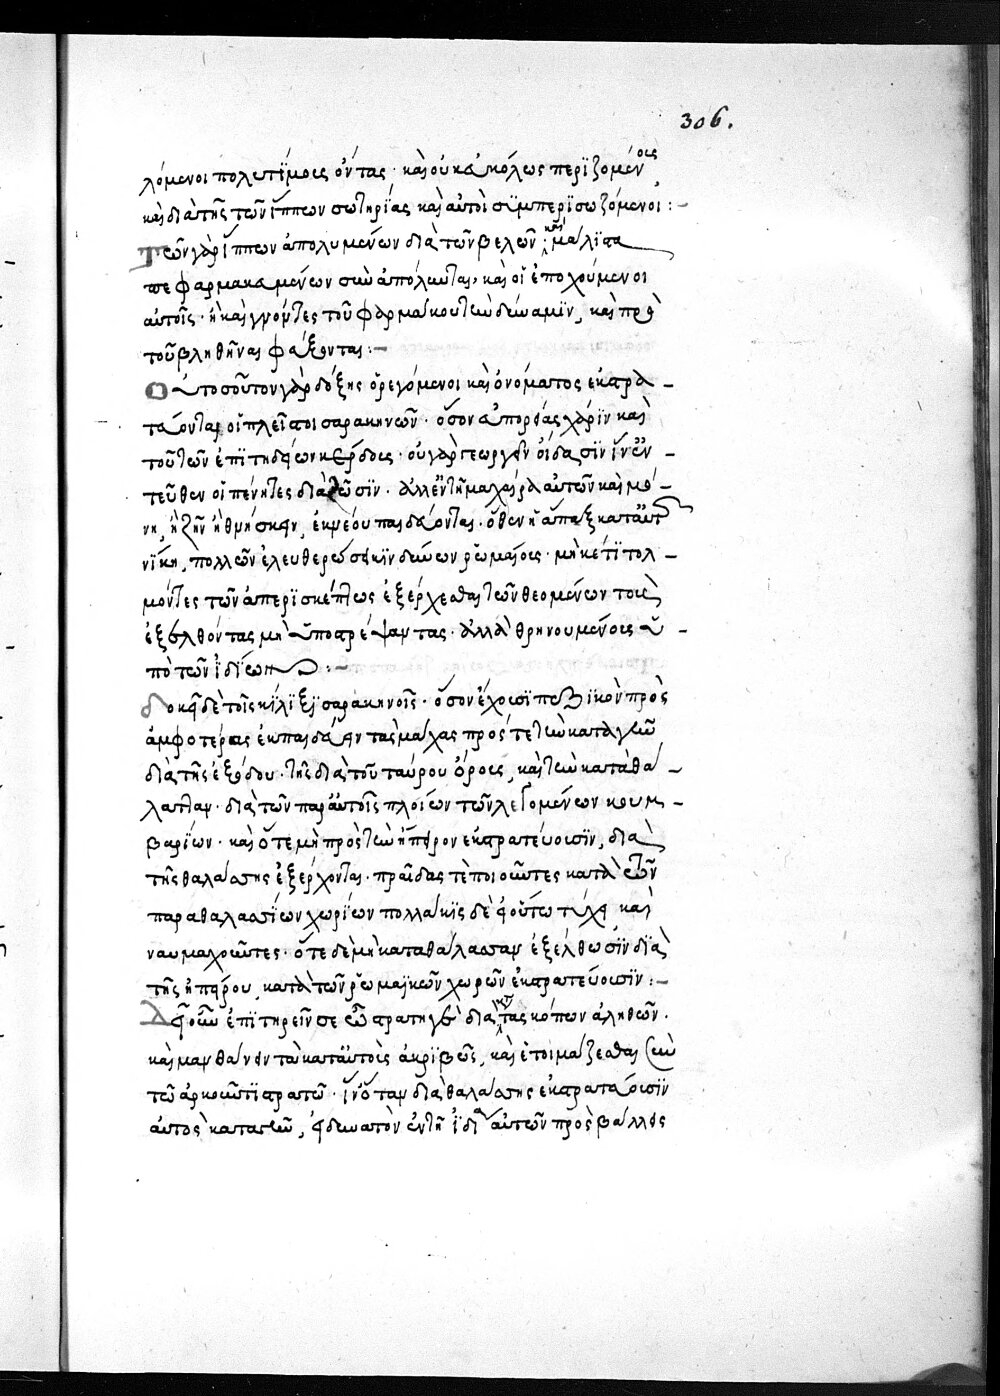 306.
λόμενοι πολυτίμοις ὄντας · καὶ οὐκ εὐκόλως περϊζομένοις
καὶ διὰ τῆς τῶν ἵππων σωτηρίας καὶ αὐτοὶ συμπερισωζόμενοι :-
Τῶν γὰρ ἵππων ἀπολυμένων διὰ τῶν βελῶν, καὶ μάλϊστα
πεφαρμακευμένων συναπόλλυνται, καὶ οἱ ἐποχούμενοι
αὐτοῖς · ἢ καὶ γνόντες τοῦ φαρμάκου τὴν δύναμϊν, καὶ πρὸ
τοῦ βληθῆναι φεύξονται :-
Οὐ τοσοῦτον γὰρ δόξης ὀρεγόμενοι καὶ ὀνόματος ἐκστρα-
τεύονται οἱ πλεῖστοι σαρακηνῶν · ὅσον εὐπορίας χάρϊν καὶ
τοῦ τῶν ἐπιτηδείων κέρδους · οὐ γὰρ γεωργεῖν οἴδασϊν ἵν' ἐν-
τεῦθεν οἱ πένητες διαζῶσϊν · ἀλλ' ἐν τῇ μαχαίρᾳ αὐτῶν καὶ μό-
νῃ, ἢ ζῆν ἢ θνήσκειν, ἐκ νέου παιδεύονται · ὅθεν ἡ ἅπαξ κατ' αὐτῶν
νίκη, πολλῶν ἐλευθερώσει κινδύνων ῥωμαίοις · μηκέτι τολ-
μῶντες τῶν ἀπερισκέπτως ἐξέρχεσθαι τῶν θεομένων τοὺς
ἐξελθόντας μὴ ὑποστρέψαντας · ἀλλὰ θρηνουμένους ὑ-
πὸ τῶν ἰδίων :-
δοκεῖ δὲ τοῖς κίλιξι σαρακηνοῖς · ὅσον ἔχουσι πεζικὸν πρὸς
ἀμφοτέρας ἐκπαιδεύειν τὰς μάχας πρός τε τὴν κατὰ γῆν
διὰ τῆς ἐξόδου · τῆς διὰ τοῦ ταύρου ὄρους, καὶ τὴν κατὰ θά-
λατταν · διὰ τῶν παρ' αὐτοῖς πλοίων τῶν λεγομένων κουμ-
βαρίων · καὶ ὅτε μὴ πρὸς τὴν ἤπειρον ἐκστρατεύουσιν, διὰ
τῆς θαλάσσης ἐξέρχονται · πραῖδας τὲ ποιοῦντες κατὰ τῶν
παραθαλασσίων χωρίων πολλάκις δὲ εἰ οὕτω τύχῃ καὶ
ναυμαχοῦντες · ὅτε δὲ μὴ κατὰ θάλασσαν ἐξέλθωσϊν διὰ
τῆς ἠπείρου, κατὰ τῶν ῥωμαϊκῶν χωρῶν ἐκστρατεύουσϊν :-
Δεῖ οὖν ἐπιτηρεῖν σε ὦ στρατηγὲ διὰ κατασκόπων ἀληθῶν ·
καὶ μανθάνειν τὰ κατ' αὐτοὺς ἀκριβῶς, καὶ ἑτοιμάζεσθαι σὺν
τῷ ἀρκοῦντι στρατῷ · ἵν' ὅταν διὰ θαλάσσης ἐκστρατεύουσϊν
αὐτὸς κατὰ γῆν, εἰ δυνατὸν ἐν τῇ ἰδίᾳ αὐτῶν προσβάλλῃς